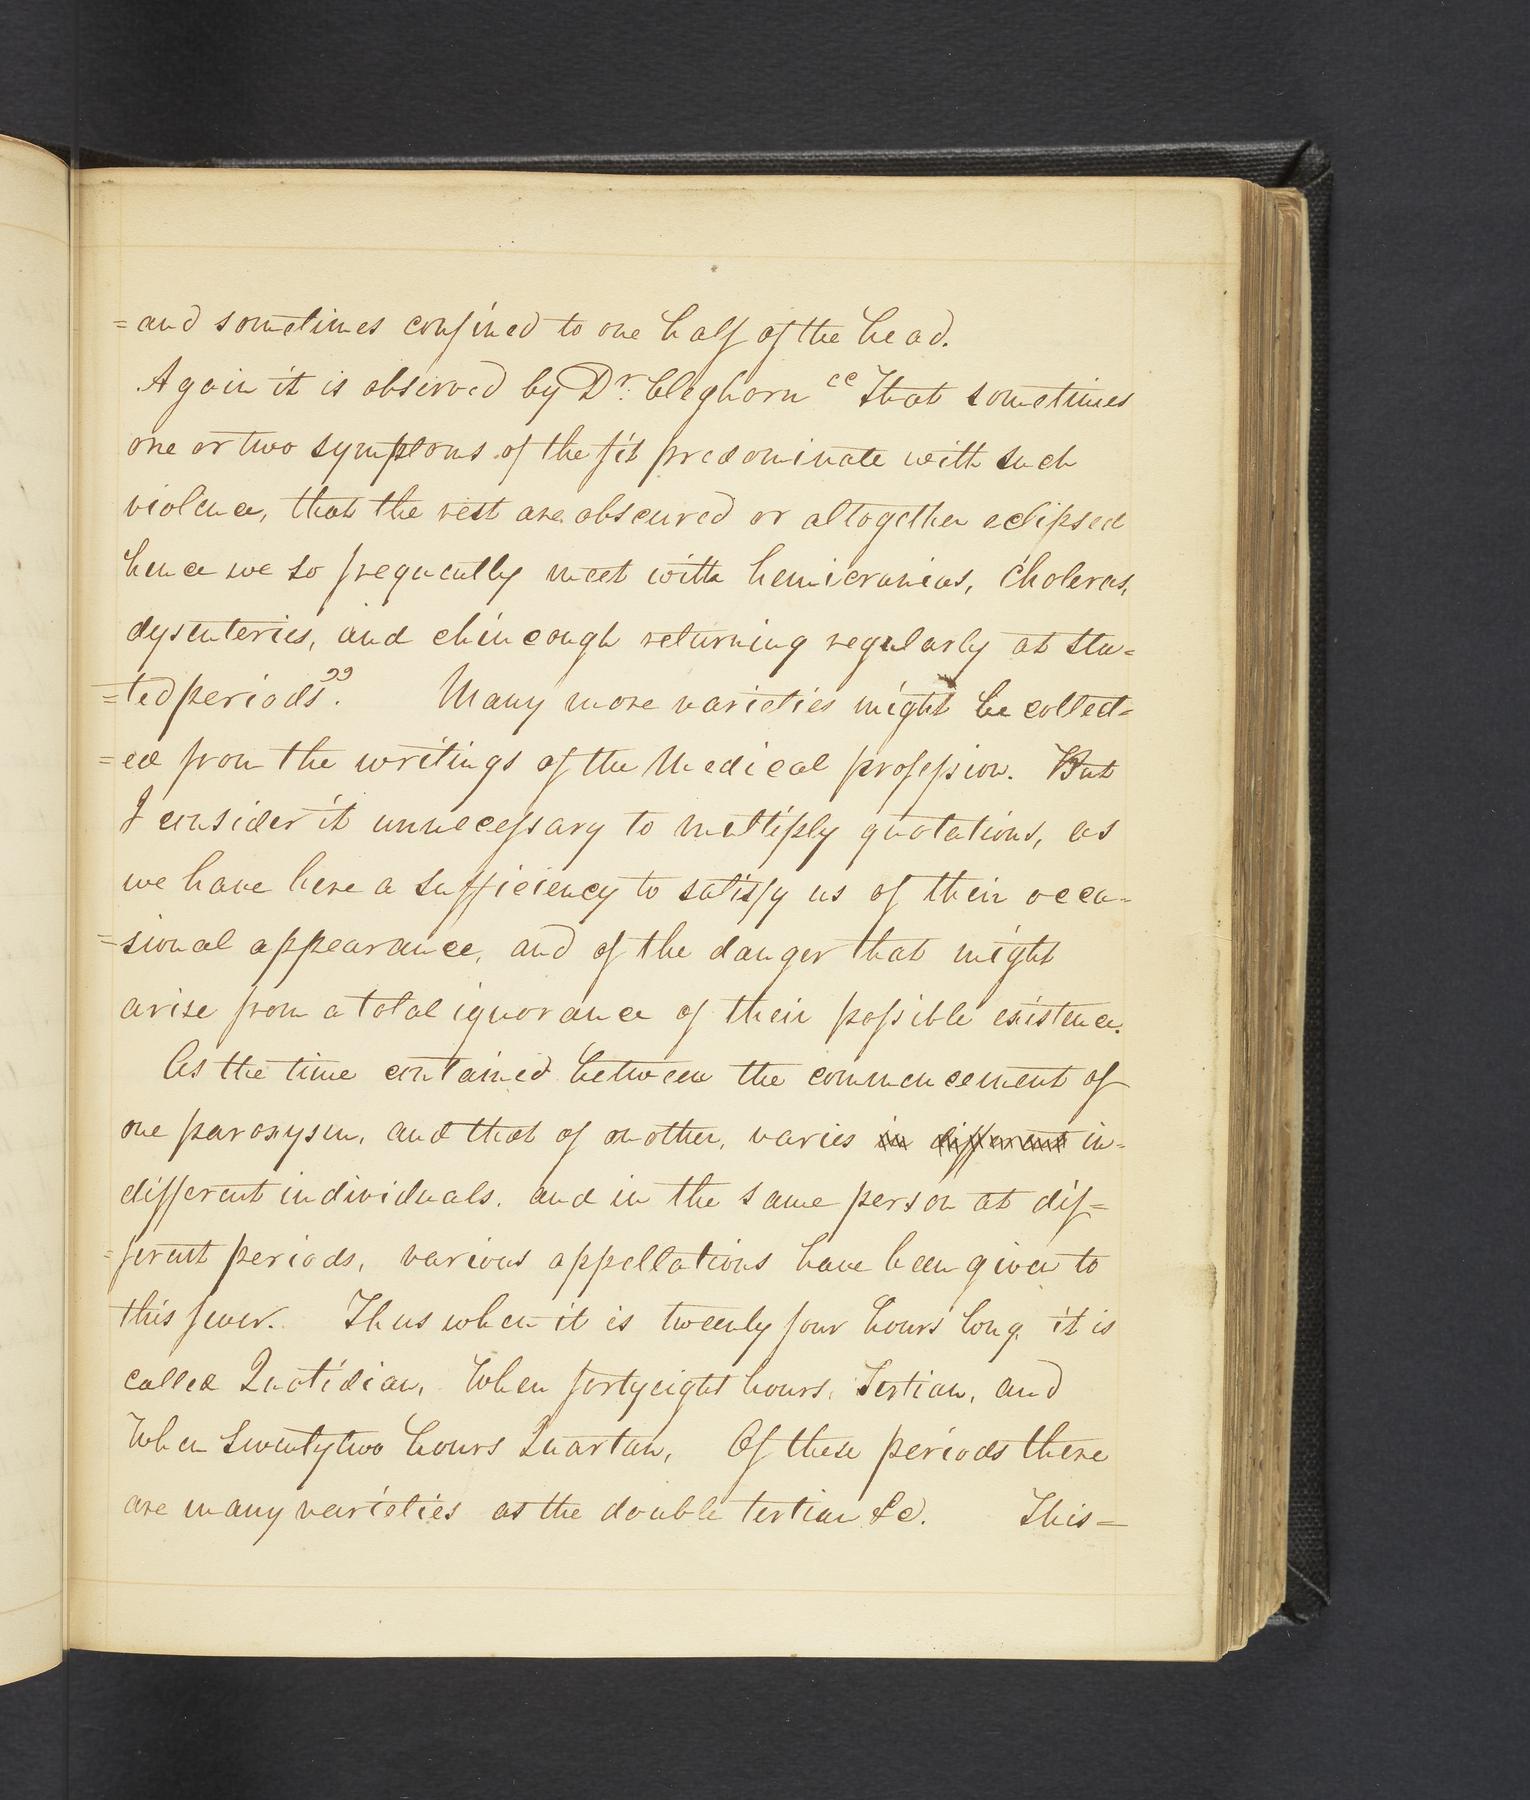 =and sometimes confined to one half of the head.
Again it is observed by Dr. Cleghorn "That sometimes
one or two symptoms of the fit predominate with such
violence, that the rest are obscured or altogether eclipsed
hence we so frequently meet with hemicranias, choleras,
dysenteries, and chincough returning regularly at sta=
=ted periods". Many more varieties might be collect=
=ed from the writings of the Medical profession. But
I consider it unnecessary to multiply quotations, as
we have here a sufficiency to satisfy us of their occa=
=sional appearance, and of the danger that might
arise from a total ignorance of their possible existence.
As the time contained between the commencement of
one paroxysm, and that of another, varies in different in=
different individuals, and in the same person at dif=
=ferent periods, various appellations have been given to
this fever. Thus when it is twenty four hours long it is
called Quotidian, When fortyeight hours, Tertian, and
When Seventytwo hours Quartan, Of these periods there
are many varieties as the double tertian &c. This=